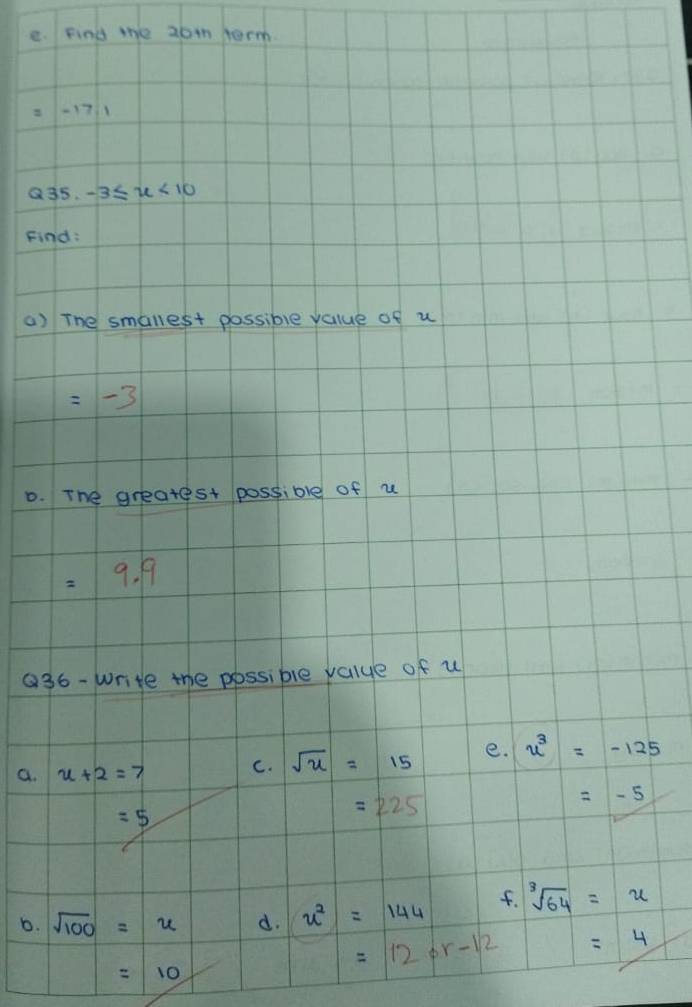 e. Find the 20th term.
= -17.1
Q35. -3 ≤ x < 10
Find:
a) The smallest possible value of x
= -3
b. The greatest possible of x
= 9.9
Q36 - Write the possible value of x
a. x + 2 = 7
= 5
c. √x = 15
= 225
e. x³ = -125
= -5
b. √100 = x
= 10
d. x² = 144
= 12 or -12
f. ³√64 = x
= 4